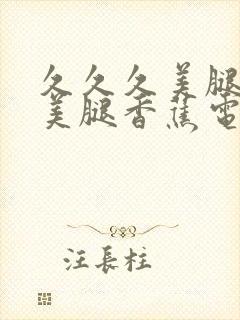 久久久美腿
美腿香蕉電
汪長柱